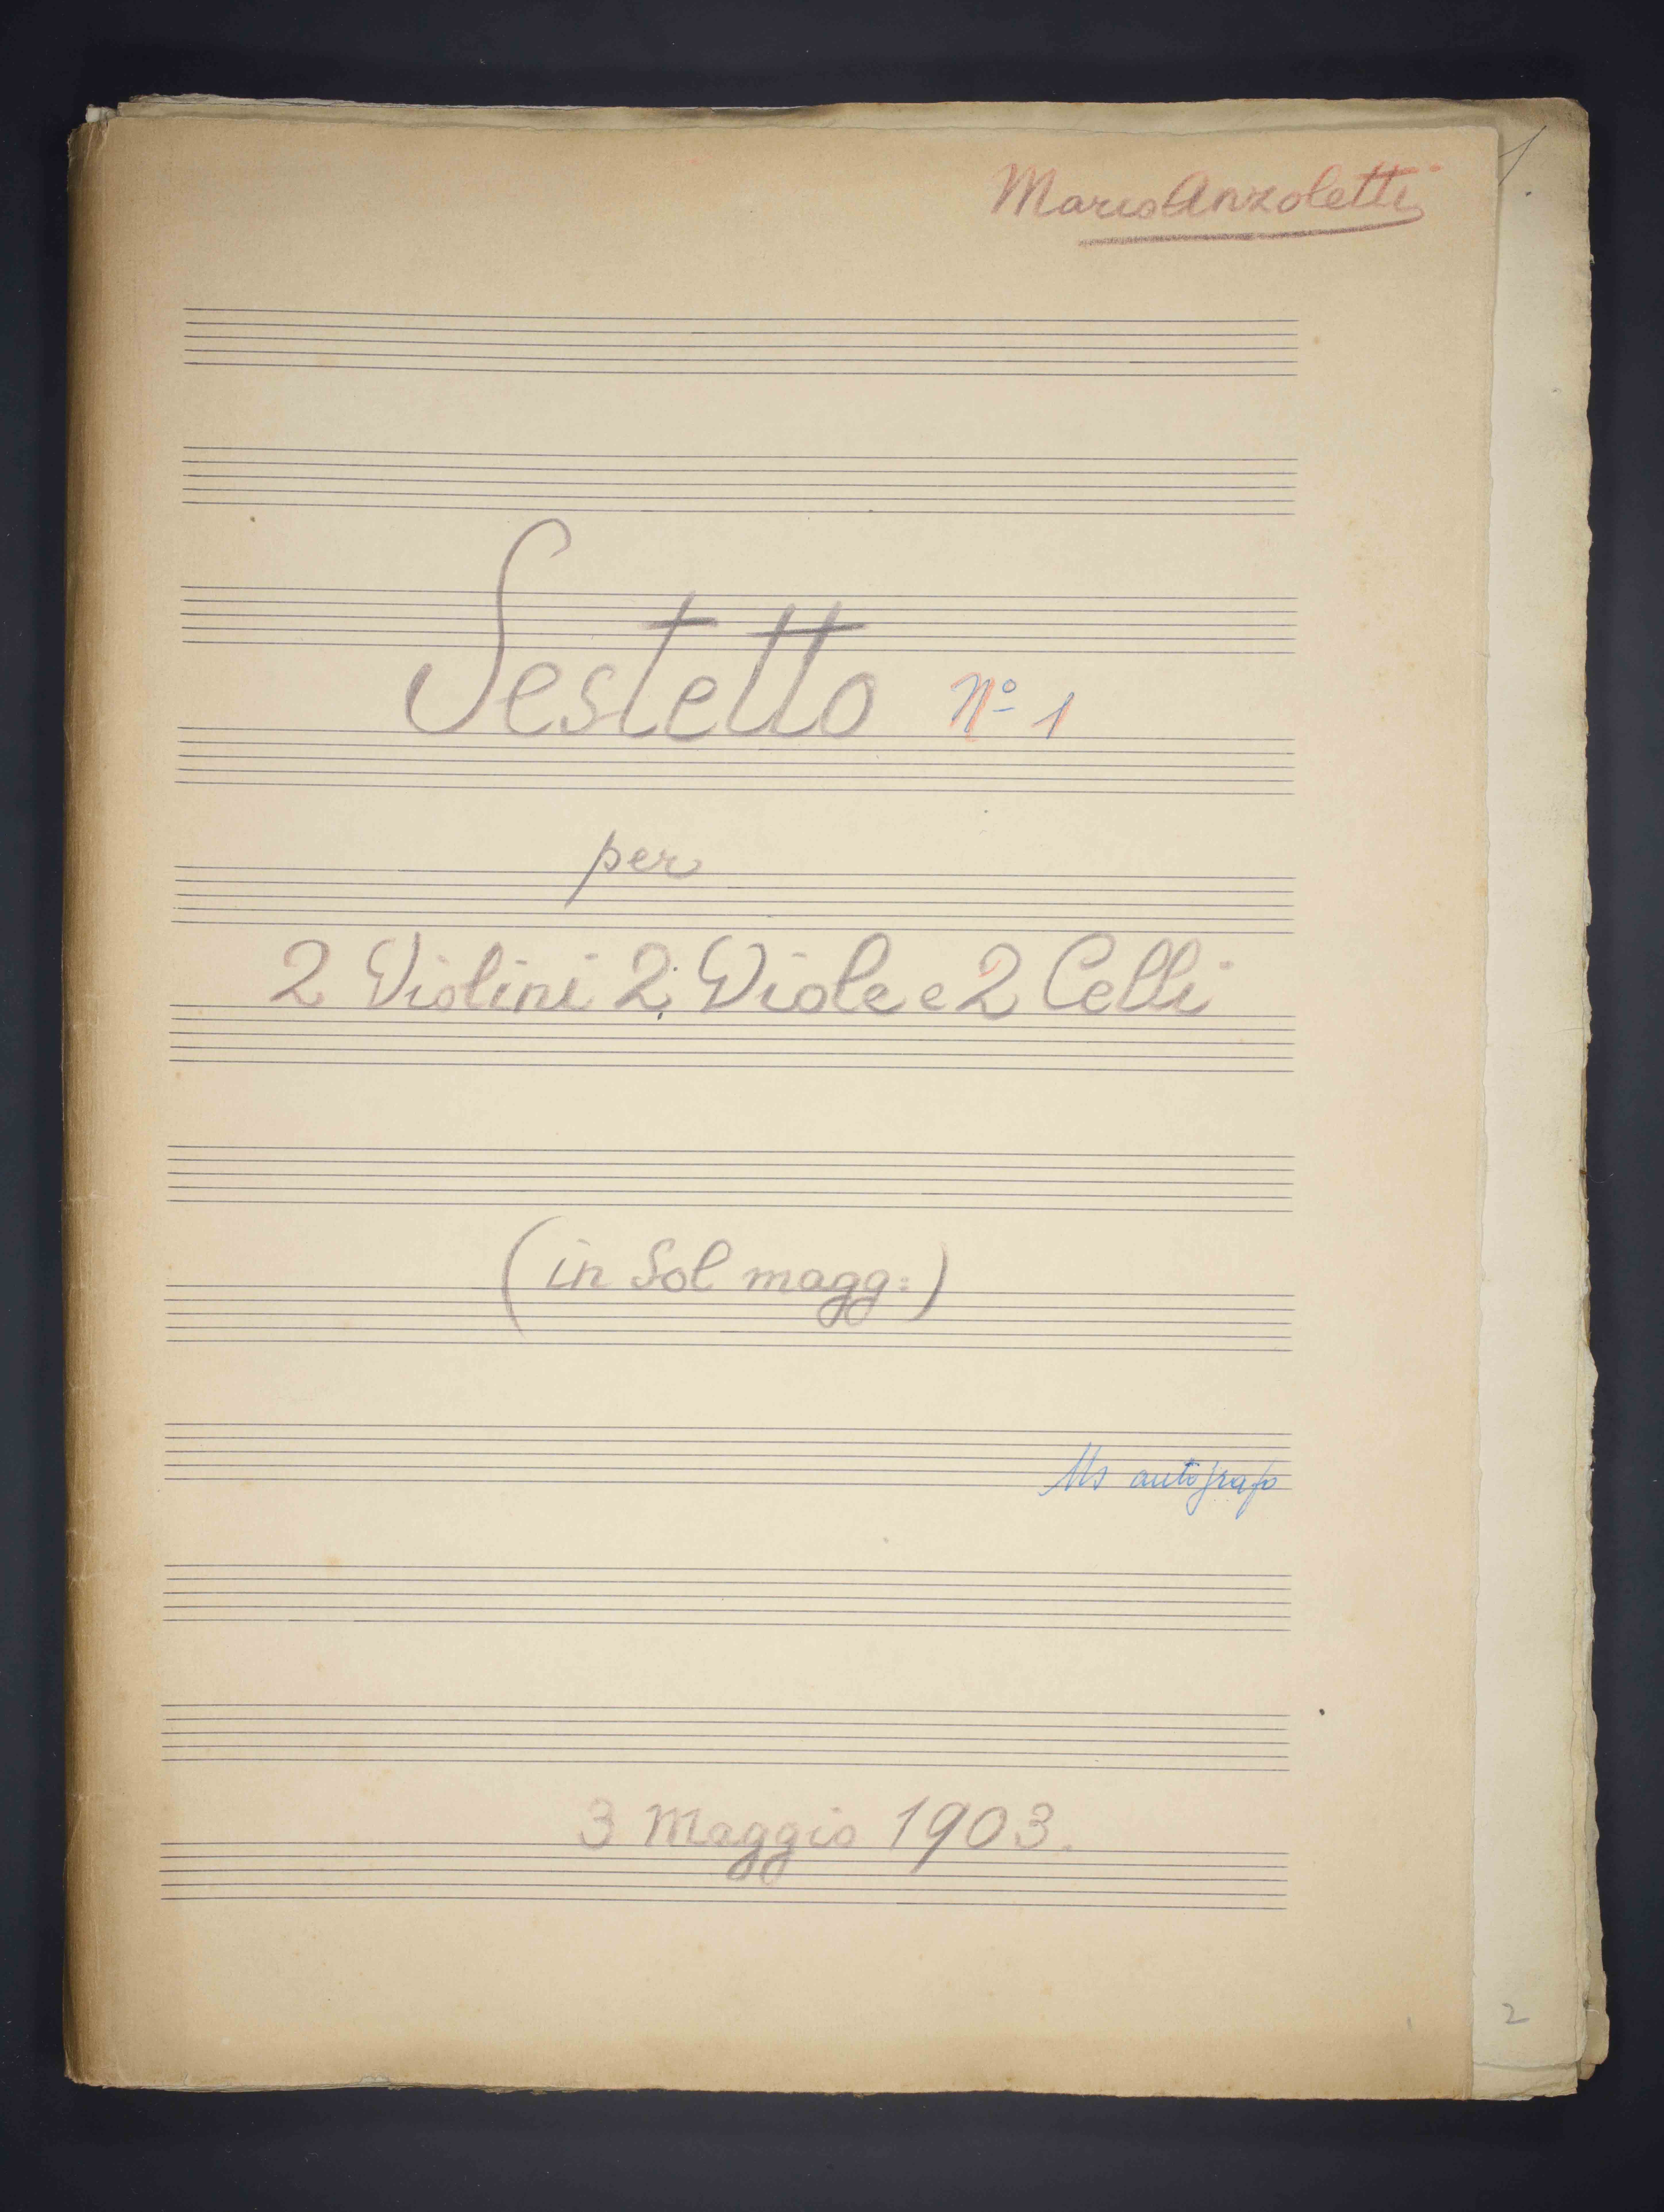 Marco Anzoletti
1.
Sestetto Nº 1
per
2 Violini 2 Viole e 2 Celli
(in Sol magg:)
Ms autografo
3 Maggio 1903.
2